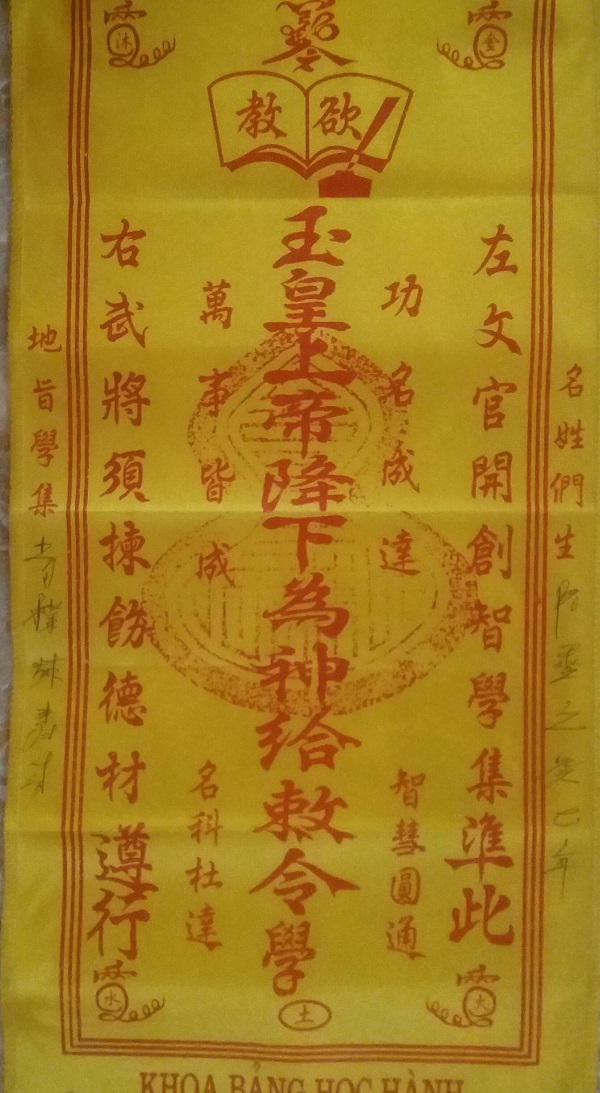 金
沐
欲教
名姓們生
左文官開創智學集準此
功名成達
智彗圓通
玉皇上帝降下為神給敕令學
萬事皆成
名科杜達
右武將須揀飭德材遵行
地旨學集
火
土
水
KHOA BẢNG HỌC HÀNH